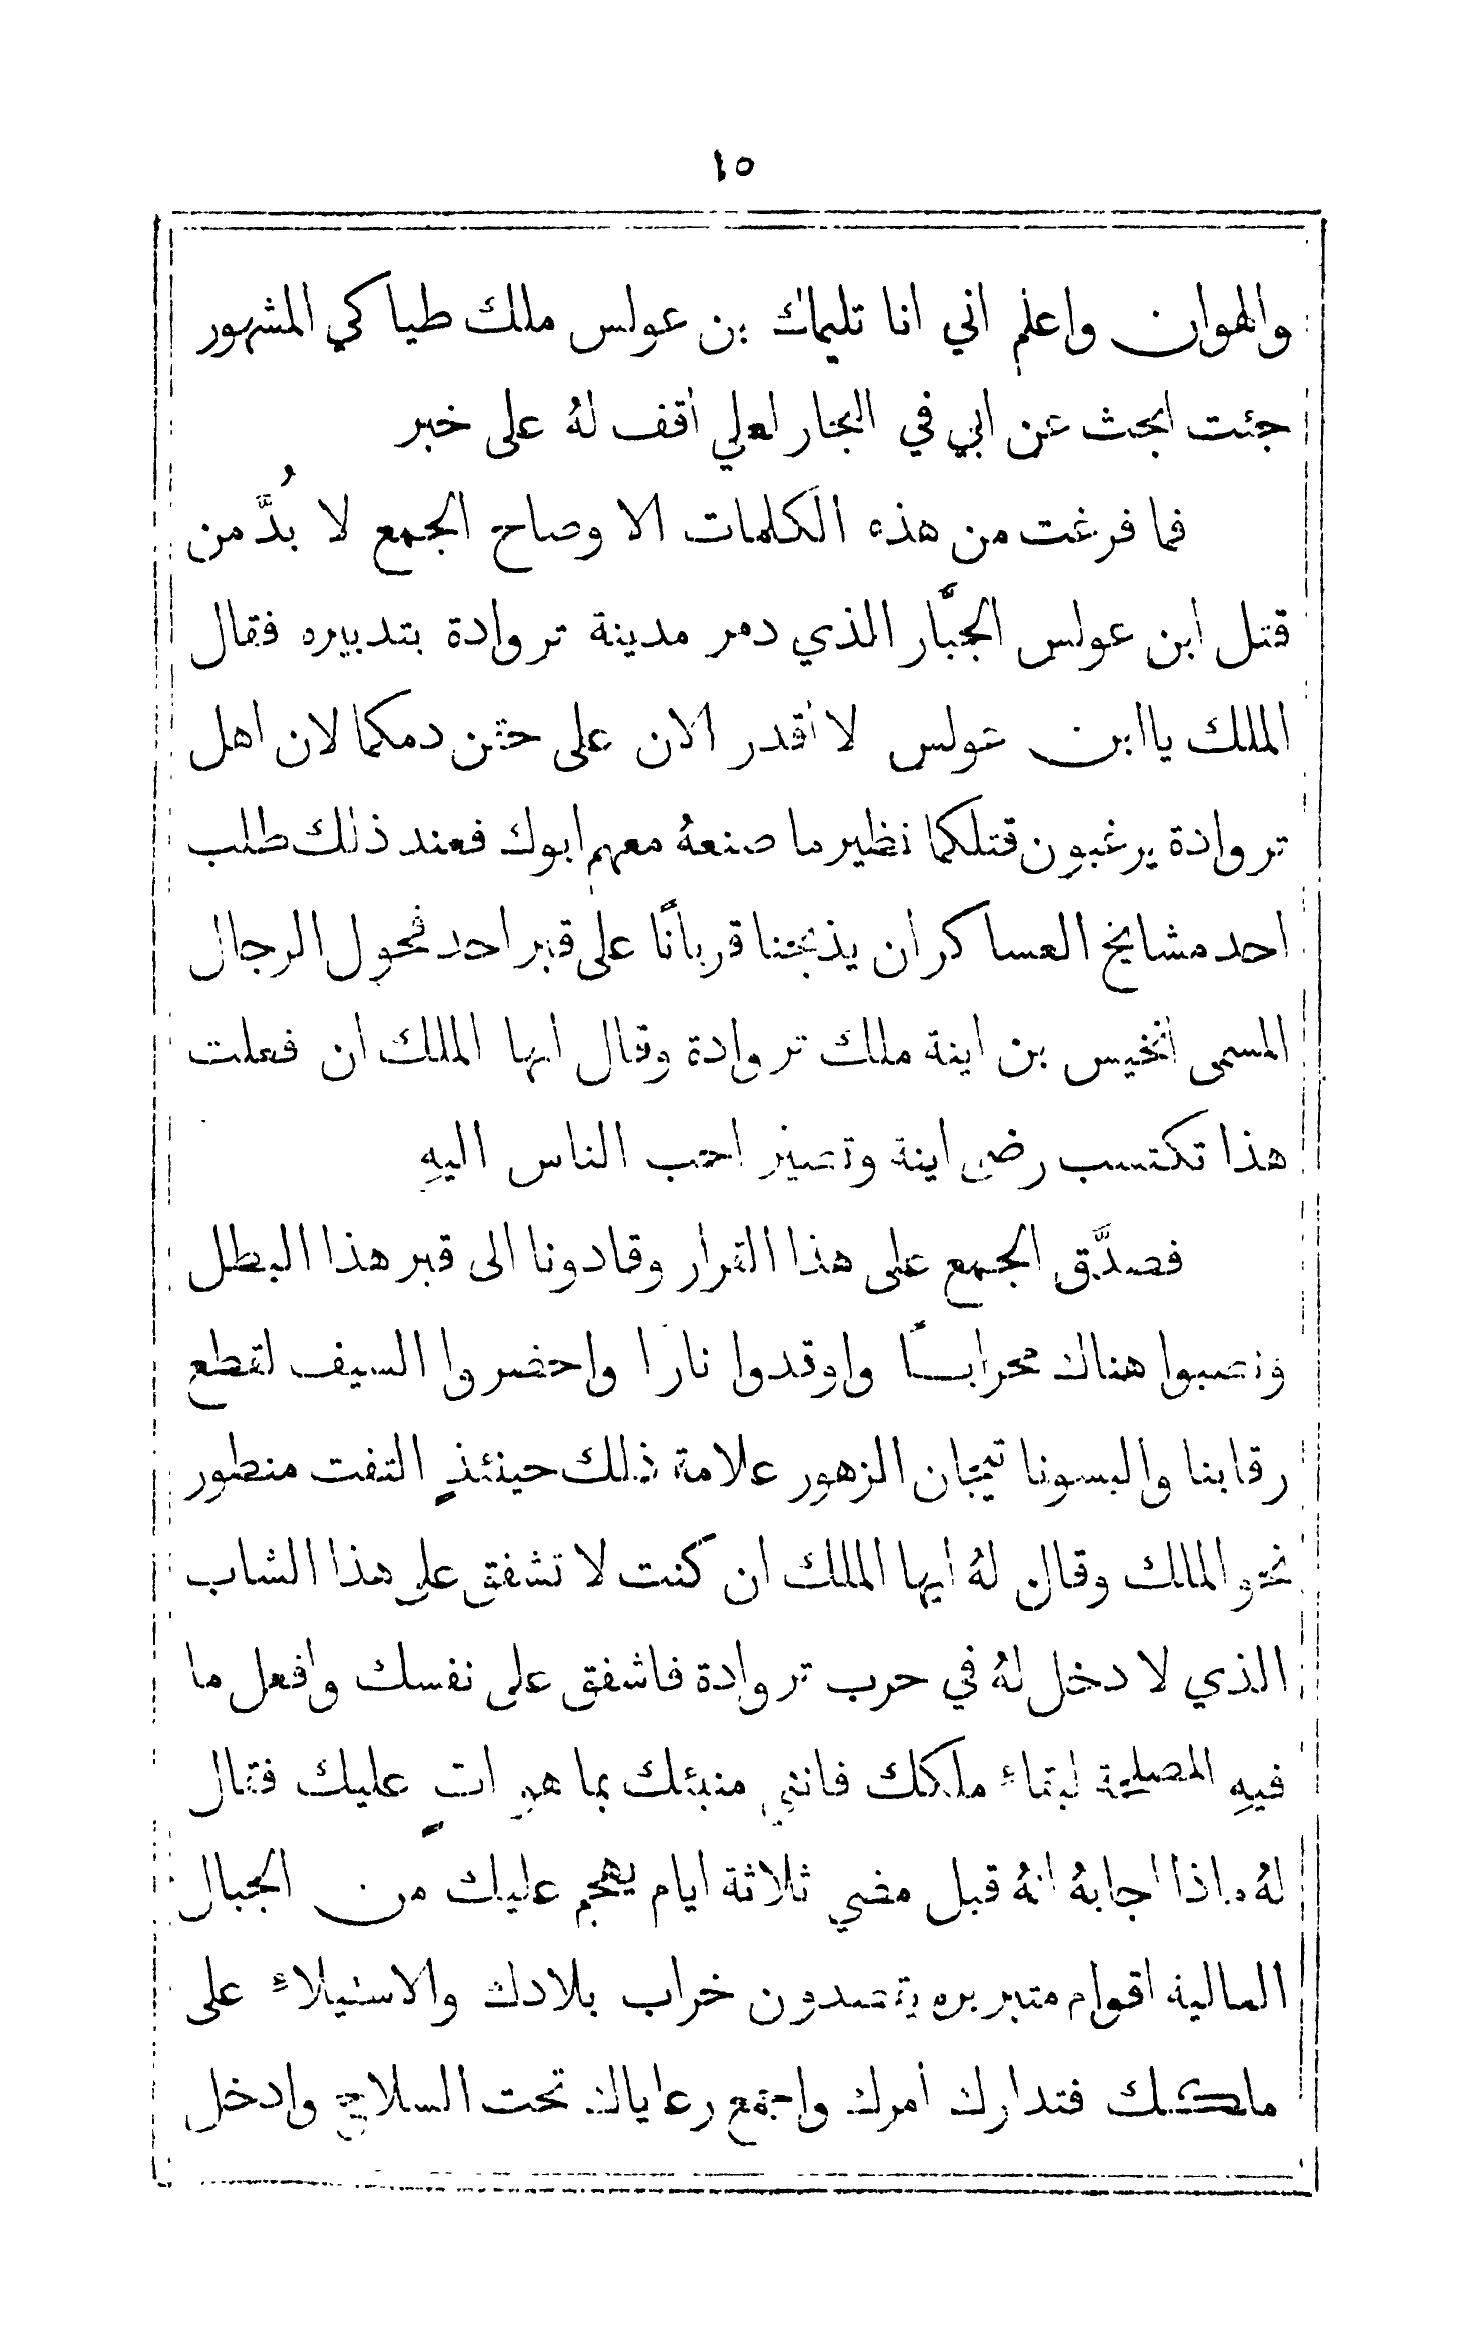 ١٥
والهوان واعلم اني انا تليماك بن عولس ملك طياكي المشهور
جئت ابحث عن ابي في البحار لعلي اقف لهُ على خبر
فما فرغت من هذه الكلمات الا وصاح الجمع لا بُدَّ من
قتل ابن عولس الجبَّار الذي دمر مدينة تروادة بتدبيره فقال
الملك يا ابن عولس لا اقدر الان على حقن دمكما لان اهل
تروادة يرغبون قتلكما نظير ما صنعهُ معهم ابوك فعند ذلك طلب
احد مشايخ العساكر ان يذبحنا قربانًا على قبر احد فحول الرجال
المسمى انخيس بن اينة ملك تروادة وقال ايها الملك ان فعلت
هذا تكتسب رضى اينة وتصير احب الناس اليهِ
فصدَّق الجمع على هذا القرار وقادونا الى قبر هذا البطل
ونصبوا هناك محرابًا واوقدوا نارا واحضروا السيف لقطع
رقابنا والبسونا تيجان الزهور علامة ذلك حينئذٍ التفت منطور
نحو الملك وقال لهُ ايها الملك ان كنت لا تشفق على هذا الشاب
الذي لا دخل لهُ في حرب تروادة فاشفق على نفسك وافعل ما
فيهِ المصلحة لبقاء ملكك فانني منبئك بما هو اتٍ عليك فقال
لهُ ماذا اجابهُ انهُ قبل مضي ثلاثة ايام يهجم عليك من الجبال
العالية اقوام متبربره يقصدون خراب بلادك والاستيلاء على
ملكك فتدارك امرك واجمع رعاياك تحت السلاح وادخل